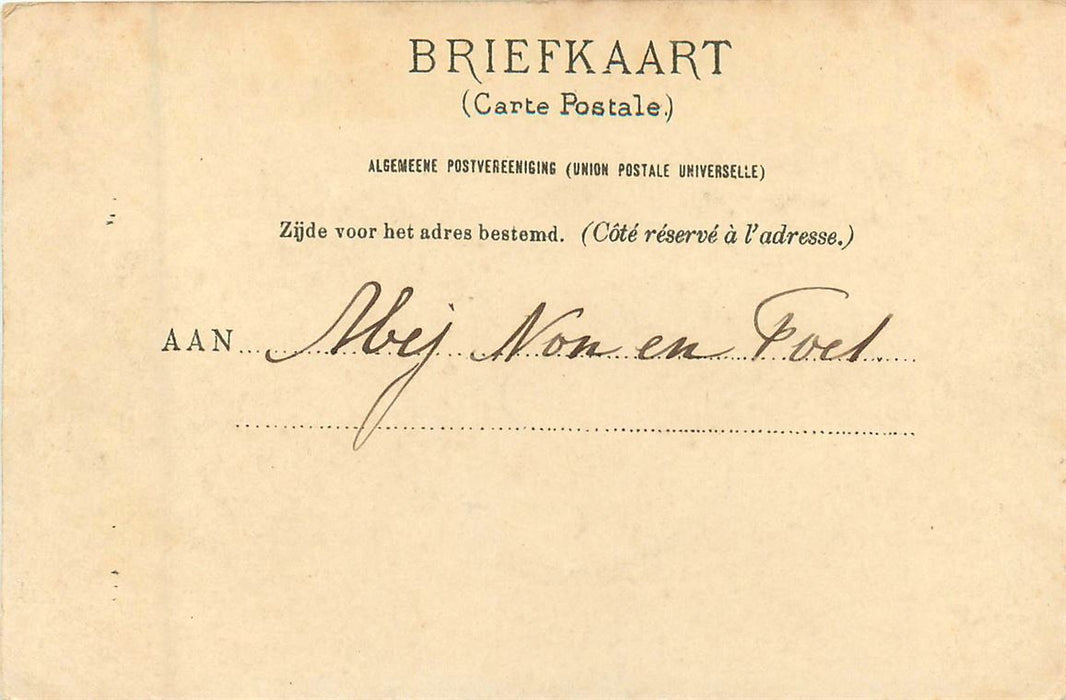 BRIEFKAART
(Carte Postale.)
ALGEMEENE POSTVEREENIGING (UNION POSTALE UNIVERSELLE)
Zijde voor het adres bestemd. (Côté réservé à l'adresse.)
AAN Mej Non en Poel